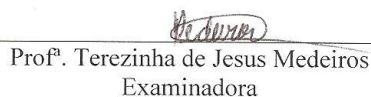 Medeiros
Profª. Terezinha de Jesus Medeiros
Examinadora